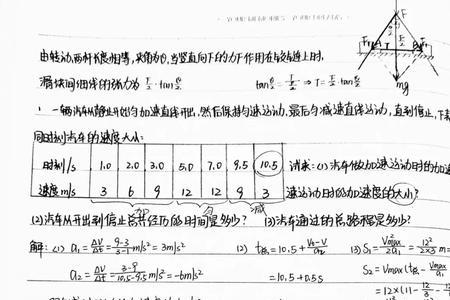 由转动两杆长度相等，夹角为θ，当竖直向下的力F作用在铰链上时，
滑块间细线的张力为 F/2·tanθ/2 tanθ/2 = ⇒ T = F/2·tanθ/2
F
F/2
T
mg
一辆汽车从静止开始匀加速直线开出，然后保持匀速运动，最后匀减速直线运动，直到停止，下表
同时刻汽车的速度大小：
时刻/s 1.0 2.0 3.0 5.0 7.0 9.5 10.5 求：(1)汽车做加速运动时的加
速度m/s 3 6 9 12 12 9 3 速运动时的加速度的大小？
加 匀 减
(2)汽车从开出到停止总共经历的时间是多少？ (3)汽车通过的总路程是多少？
解：(1) a₁ = ΔV/Δt = (9-3)/(3-1) m/s² = 3m/s² (2) t总 = 10.5 + (V₀-V)/a₂ (3) S₁ = V²max/2a₁ = 12²/2×3 m =
a₂ = ΔV/Δt = (3-9)/(10.5-9.5) m/s² = -6m/s² = 10.5+0.5s S₂ = Vmax(t总 - Vmax/a₁
= 12×(11 - 12/3 -